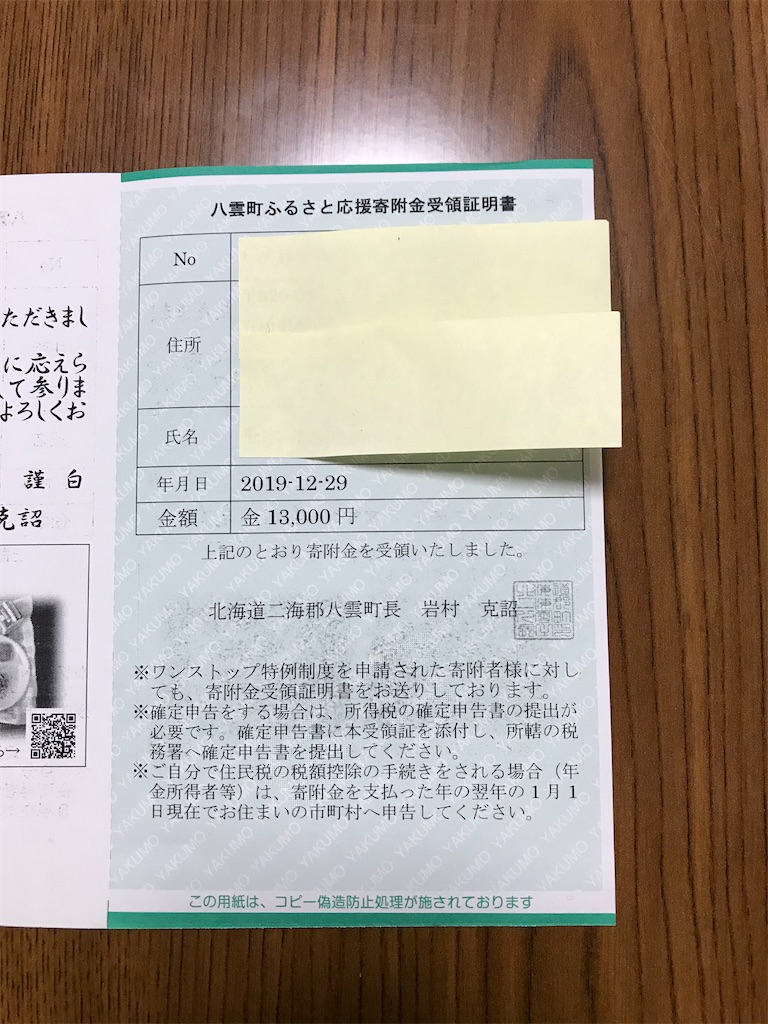 八雲町ふるさと応援寄附金受領証明書
No
住所
氏名
年月日 2019-12-29
金額 金 13,000 円
上記のとおり寄附金を受領いたしました。
北海道二海郡八雲町長 岩村 克詔
※ワンストップ特例制度を申請された寄附者様に対し
ても、寄附金受領証明書をお送りしております。
※確定申告をする場合は、所得税の確定申告書の提出が
必要です。確定申告書に本受領証を添付し、所轄の税
務署へ確定申告書を提出してください。
※ご自分で住民税の税額控除の手続きをされる場合（年
金所得者等）は、寄附金を支払った年の翌年の１月１
日現在でお住まいの市町村へ申告してください。
この用紙は、コピー偽造防止処理が施されております
ただきまし
に応えら
て参りま
よろしくお
謹 白
克詔
YAKUMO